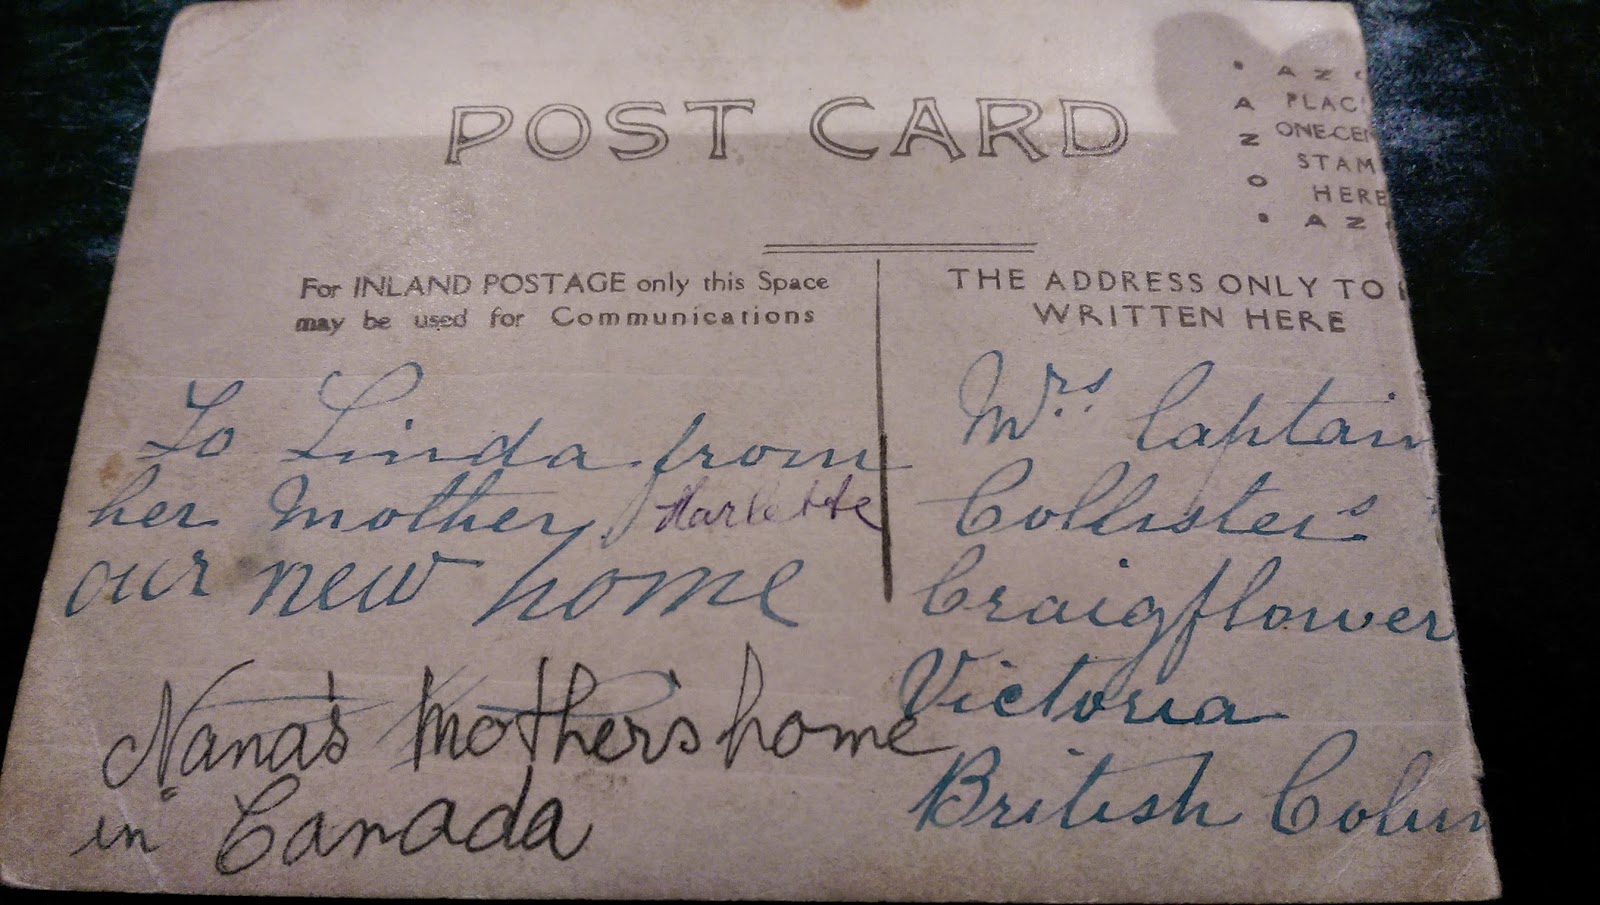 POST CARD
AZO
PLAC
ONE-CEN
STAM
HERE
AZ
AZO
For INLAND POSTAGE only this Space
may be used for Communications
THE ADDRESS ONLY TO
WRITTEN HERE
To Linda from
her Mother Harlette
our new home
Nana's Mother's home
in Canada
Mrs Captain
Collister's
Craigflower
Victoria
British Colum